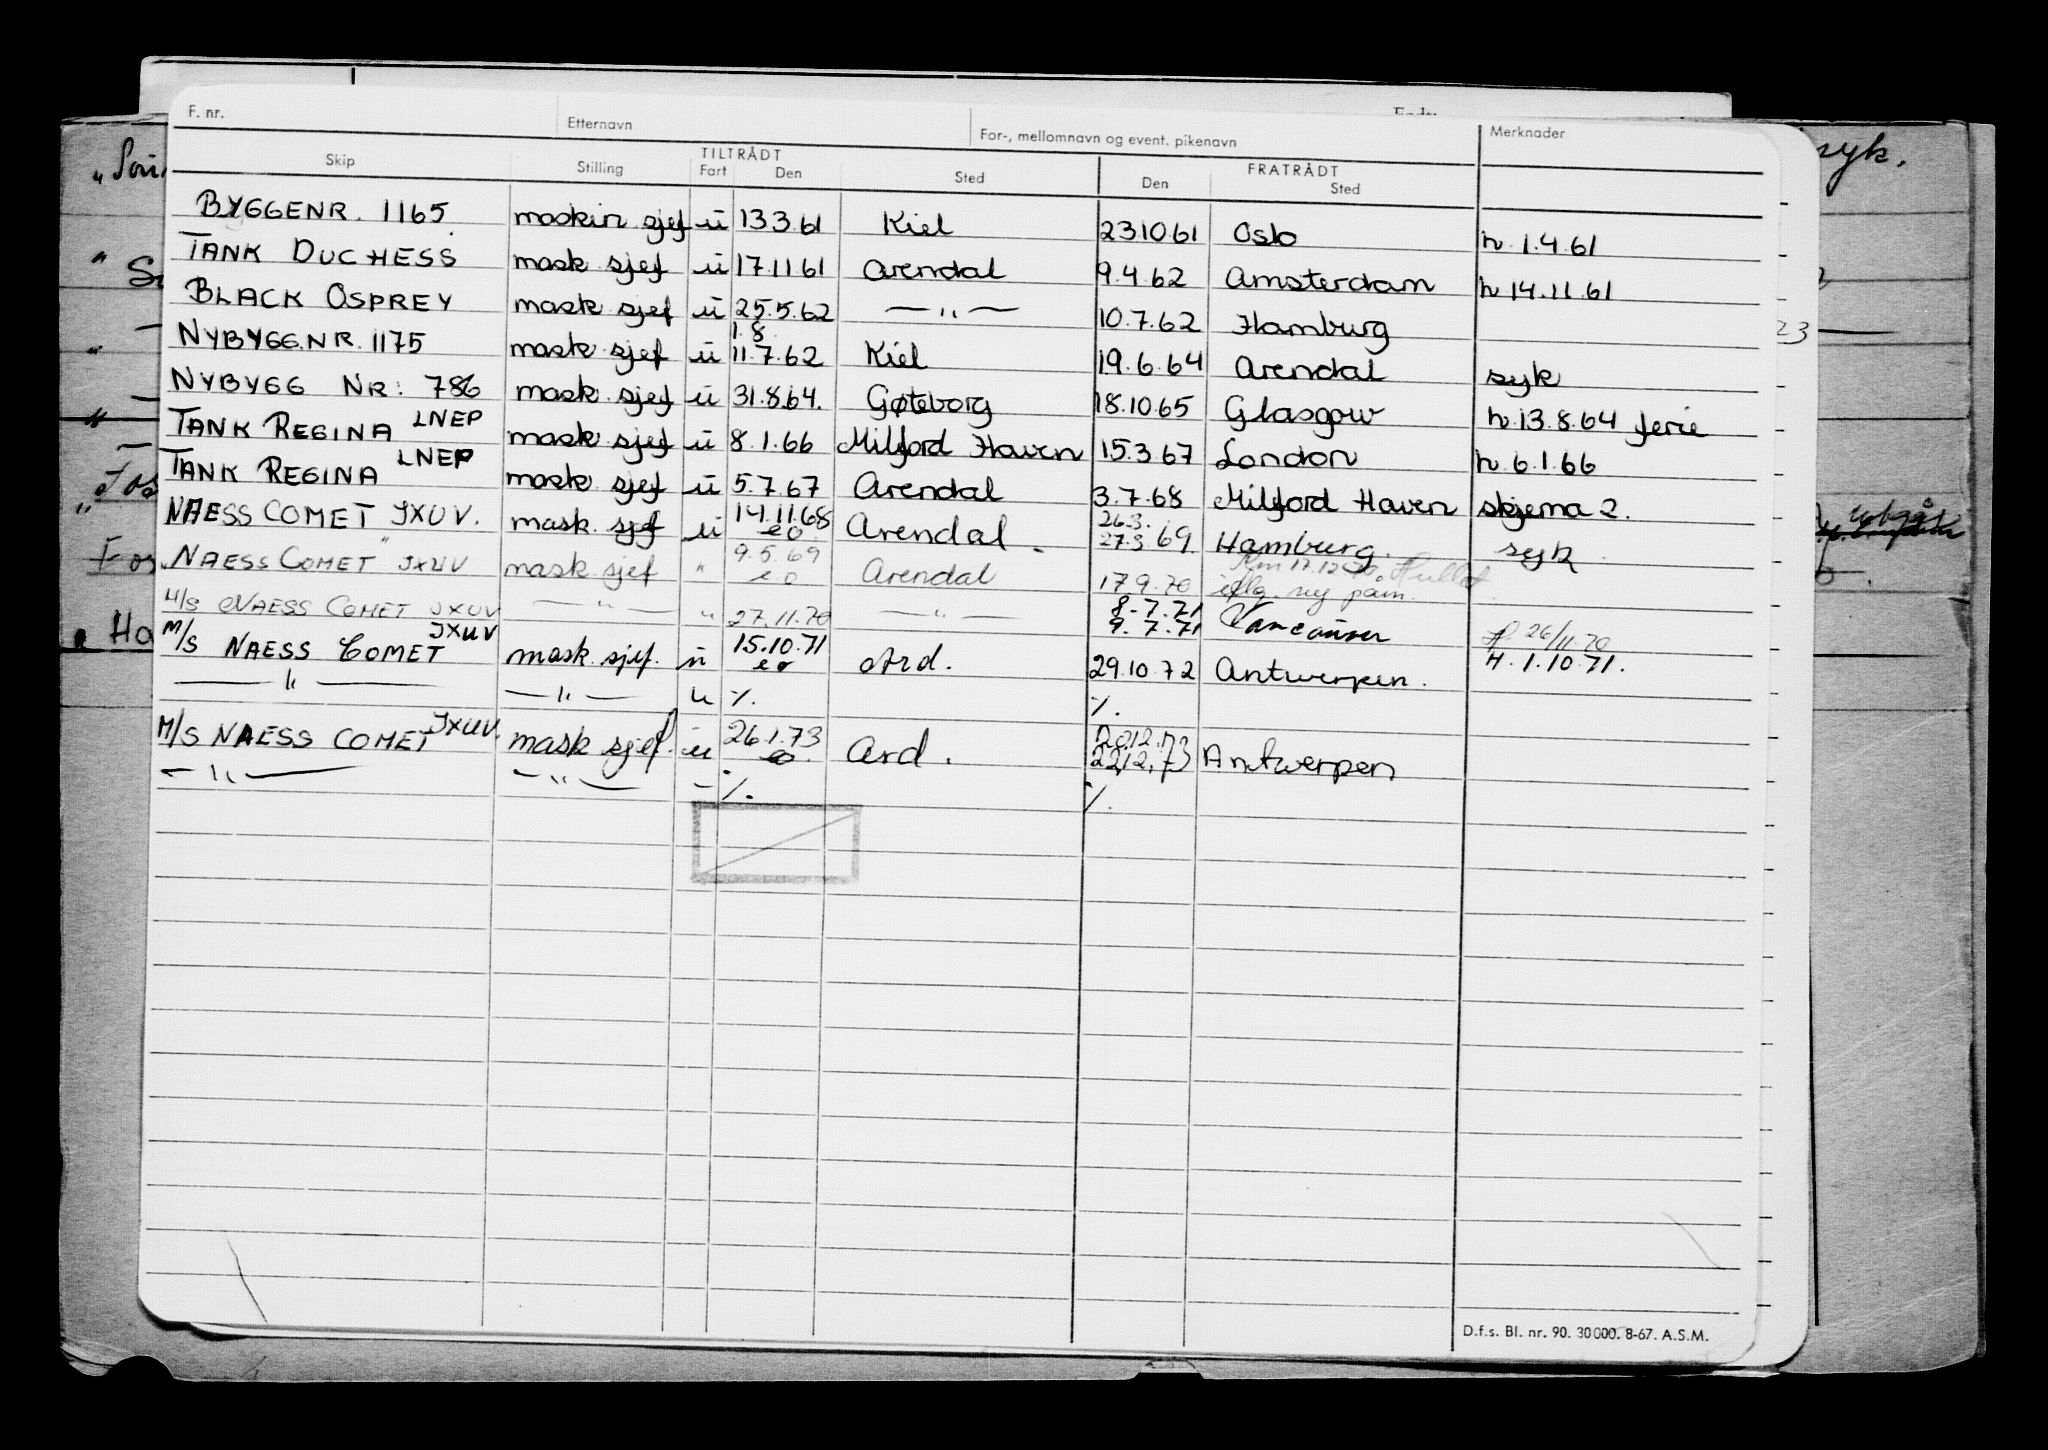 F. nr. Etternavn For-, mellomnavn og event. pikenavn Merknader
TILTRÅDT FRATRÅDT
Skip Stilling Fart Den Sted Den Sted
BYGGENR. 1165 maskin sjef u 13.3.61 Kiel 23.10.61 Oslo h. 1.4.61
TANK DUCHESS mask sjef u 17.11.61 Arendal 9.4.62 Amsterdam h 14.11.61
BLACK OSPREY mask sjef u 25.5.62 —"— 10.7.62 Hamburg
1.8
NYBYGG.NR. 1175 mask sjef u 11.7.62 Kiel 19.6.64 Arendal syk
NYBYGG NR: 786 mask sjef u 31.8.64. Gøteborg 18.10.65 Glasgow h.13.8.64 ferie
TANK REGINA LNEP mask sjef u 8.1.66 Milford Haven 15.3.67 London h 6.1.66
TANK REGINA LNEP mask sjef u 5.7.67 Arendal 3.7.68 Milford Haven skjema 2.
NAESS COMET JXUV. mask. sjef u 14.11.68 eo Arendal 26.3. 27.3 69 Hamburg. syk
"NAESS COMET" JXUV mask sjef " 9.5.69 eo Arendal 17.9.70 iflg. nyj
M/S NAESS COMET JXUV —"— " 27.11.70 —"— 8.7.71 9.7.71 Vancouver H 26/11.70
M/S NAESS COMET JXUV mask. sjef. u 15.10.71 eo Ard. 29.10.72 Antwerpen. H. 1.10.71.
—"— —"— u %. %.
M/S NAESS COMET JXUV. mask sjef. u 26.1.73 eo. Ard. 22.12.73 Antwerpen
—"— —"— – %. %.
D.f.s. Bl. nr. 90. 30 000. 8-67. A.S.M.
syk.
23